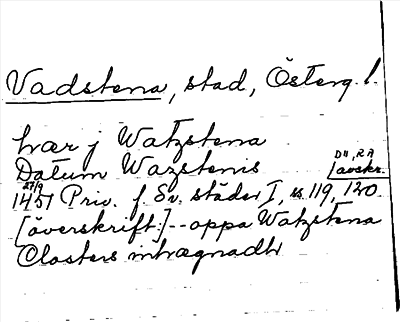 Vadstena, stad, Österg. l.
hwær j Watzstena
Datum Wazstenis
DH, RA
avskr.
27/9
1451 Priv. f. Sv. städer I, ss 119, 120.
[överskrift:] -- oppa Watzstena
Closters intrægnadh